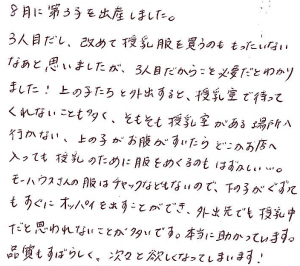 8月に第3子を出産しました。
3人目だし、改めて授乳服を買うのももったいない
なあと思いましたが、3人目だからこそ必要だとわかり
ました！上の子たちと外出すると、授乳室で待って
くれないことも多く、そもそも授乳室がある場所へ
行かない、上の子がお腹がすいたらどこかお店へ
入っても授乳のために服をめくるのもはずかしい…。
モーハウスさんの服はチャックなどもないので、下の子がぐずって
もすぐにオッパイを出すことができ、外出先でも授乳中
だと思われないことが多いです。本当に助かっています。
品質もすばらしく、次々と欲しくなってしまいます！